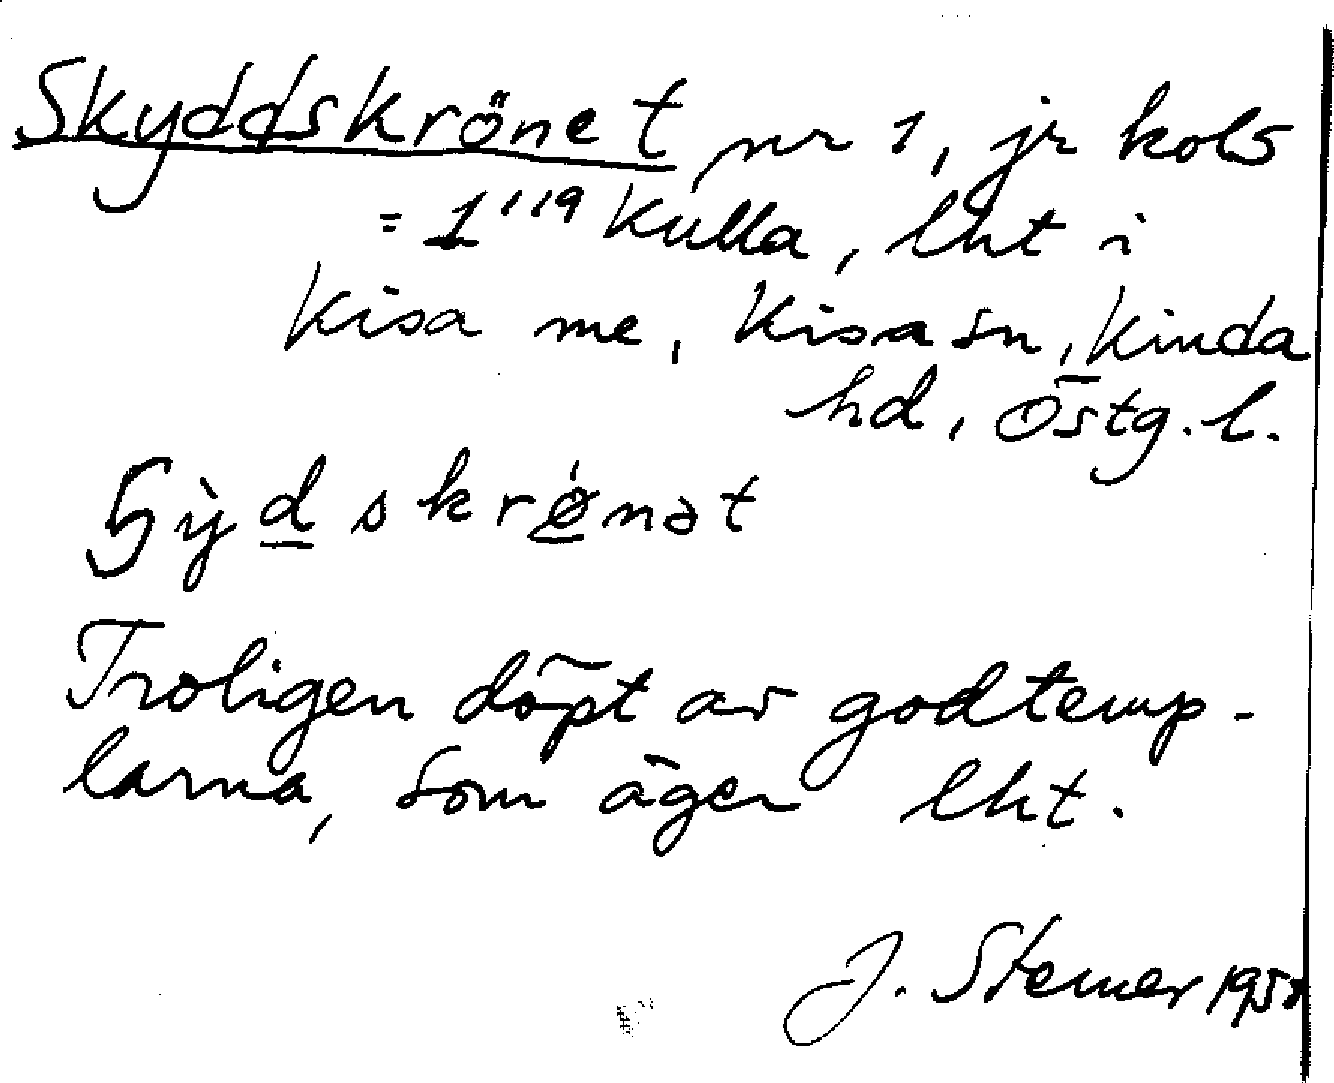 Skyddskrönet nr 1, jr kols
= 1¹¹⁹ Kulla, lht i
Kisa me, Kisa sn, Kinda
hd, Östg. l.
Troligen döpt av godtemp-
larna, som äger lht.
J.